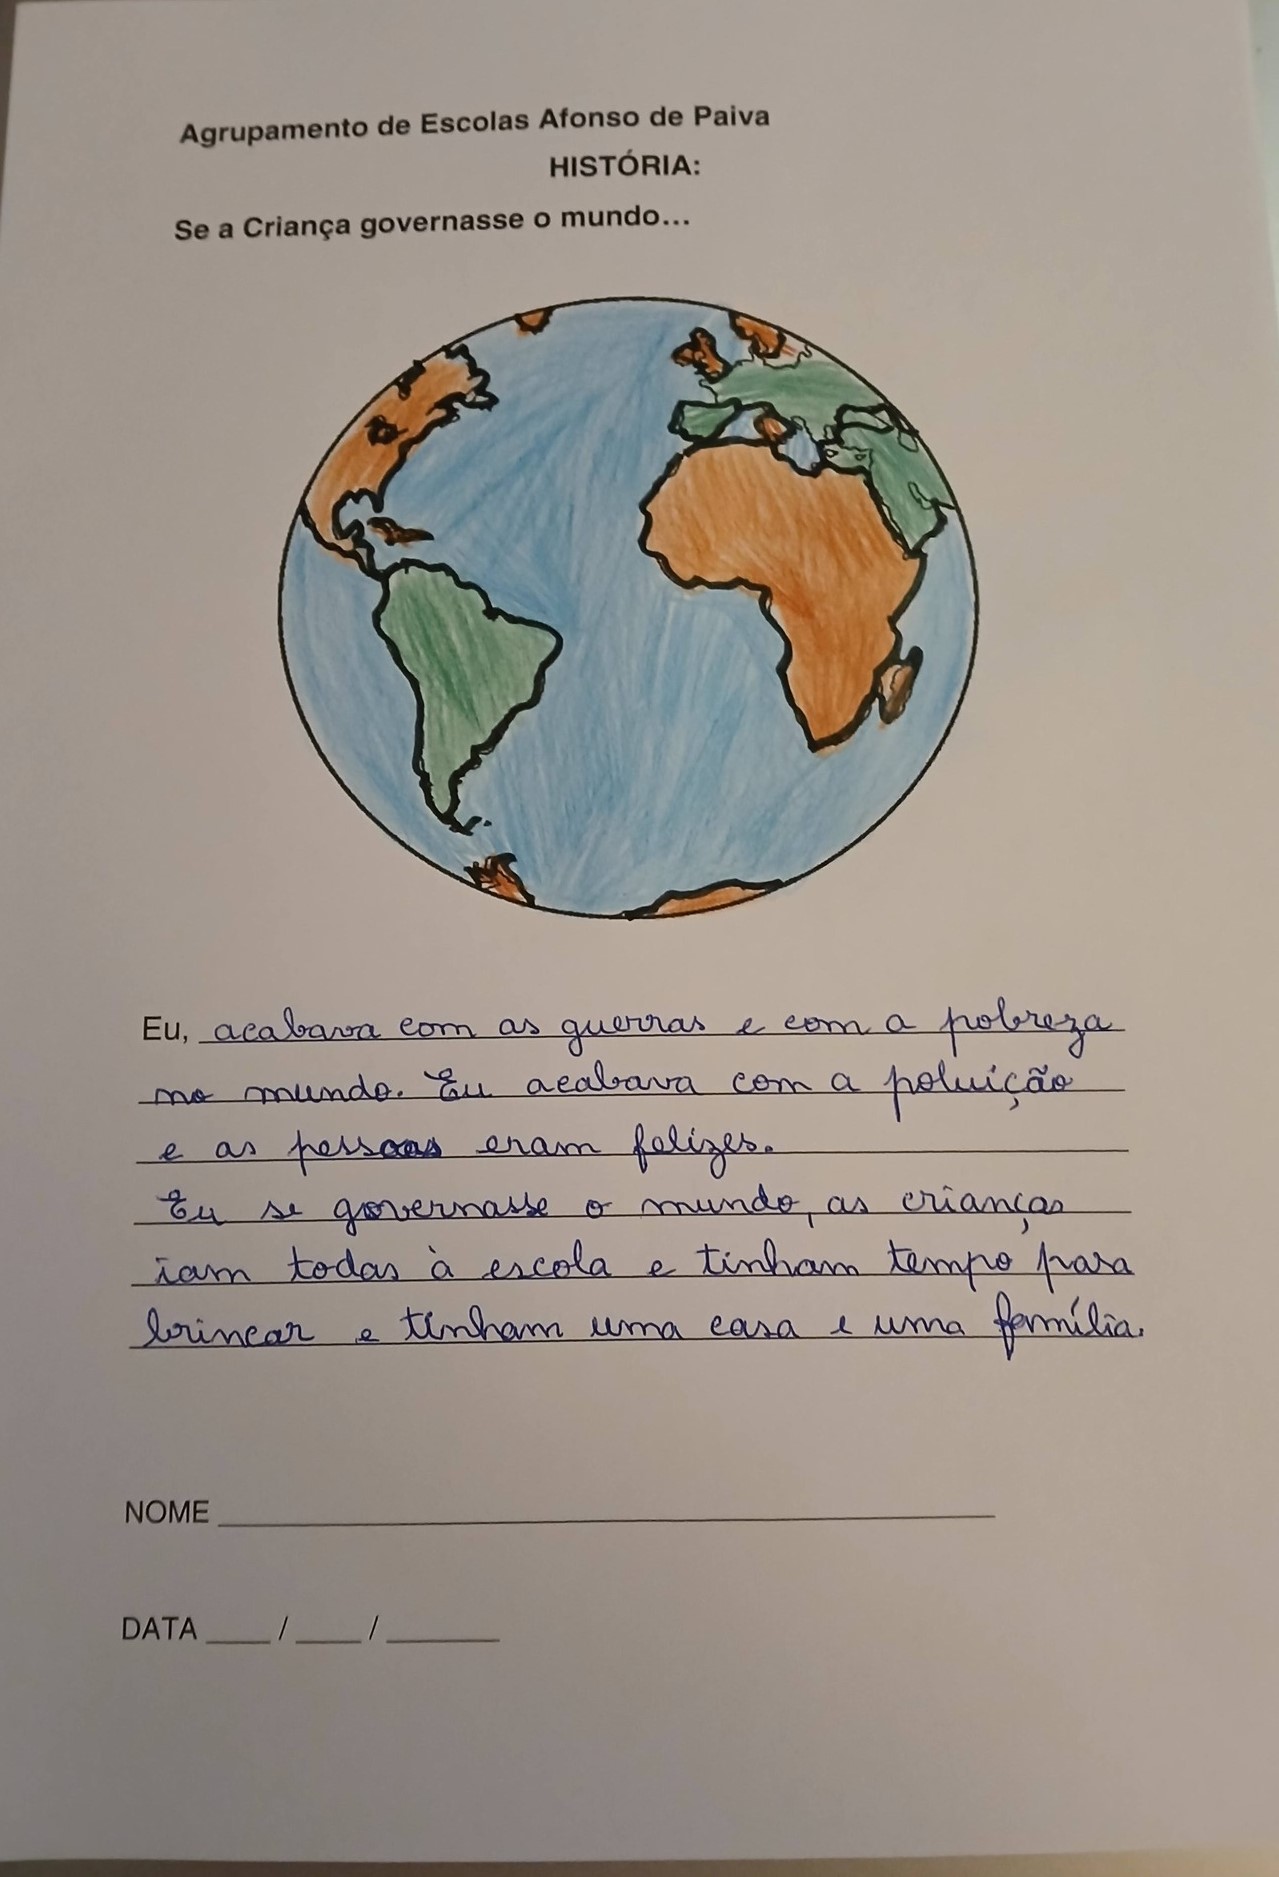 Agrupamento de Escolas Afonso de Paiva
HISTÓRIA:
Se a Criança governasse o mundo...
Eu, acabava com as guerras e com a pobreza
no mundo. Eu acabava com a poluição
e as pessoas eram felizes.
Eu se governasse o mundo, as crianças
iam todas à escola e tinham tempo para
brincar e tinham uma casa e uma família.
NOME
DATA ____ / ____ / _______